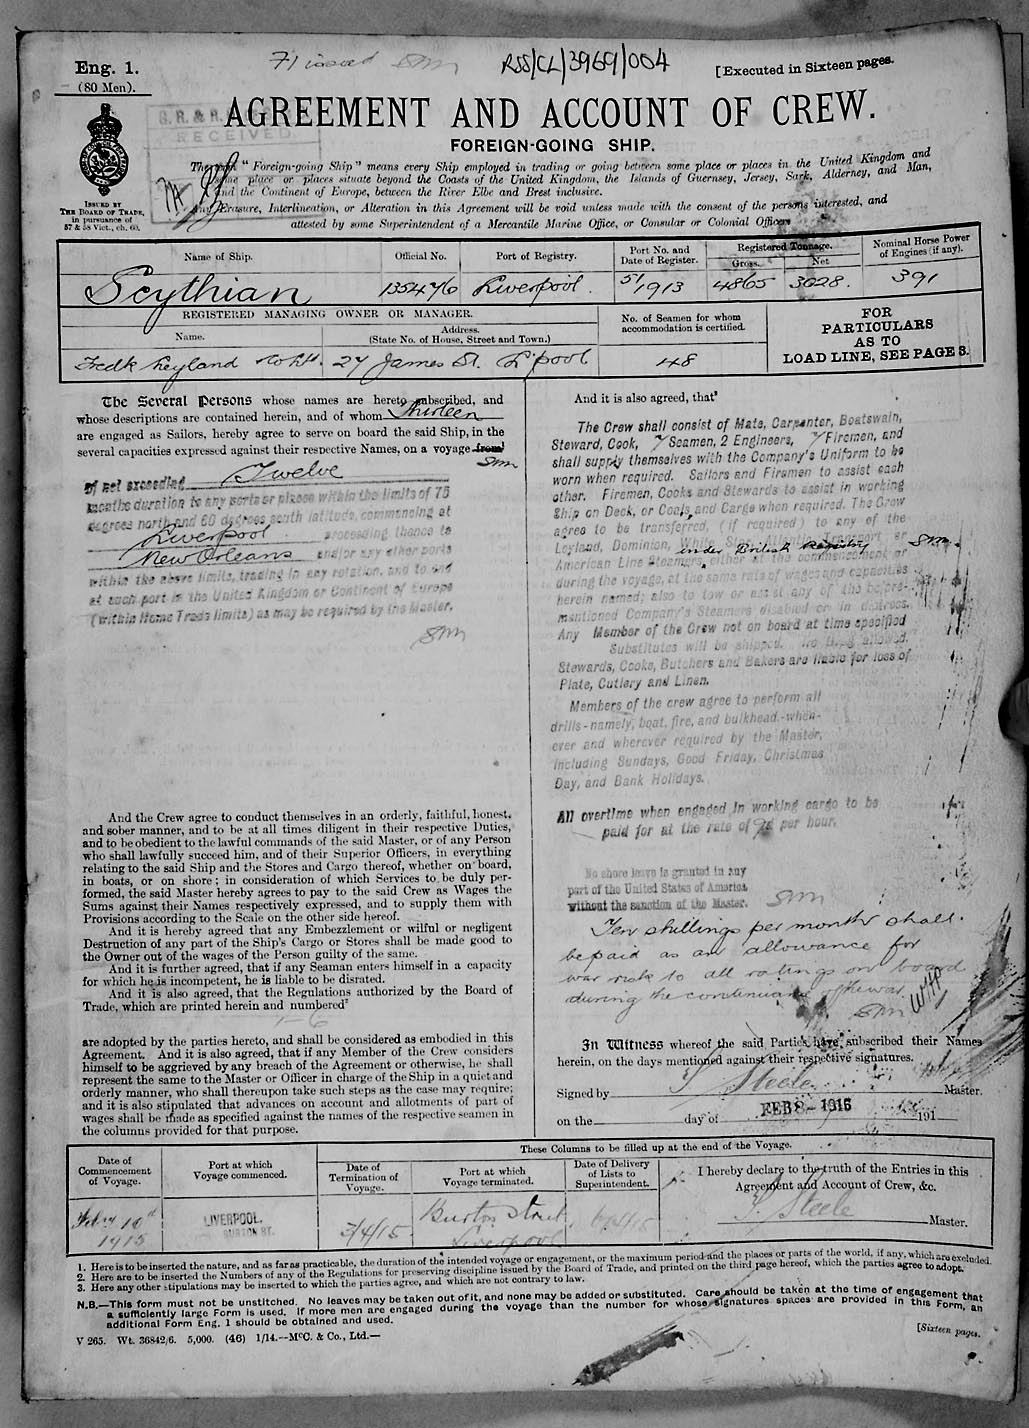 Eng. 1.
(80 Men).
71 issued
RSS/CL/3969/004
[Executed in Sixteen pages.
RECEIVED
AGREEMENT AND ACCOUNT OF CREW.
FOREIGN-GOING SHIP.
ISSUED BY
THE BOARD OF TRADE,
in pursuance of
57 & 58 Vict., ch. 60.
The term "Foreign-going Ship" means every Ship employed in trading or going between some place or places in the United Kingdom and
some place or places situate beyond the Coasts of the United Kingdom, the Islands of Guernsey, Jersey, Sark, Alderney, and Man,
and the Continent of Europe, between the River Elbe and Brest inclusive.
Any Erasure, Interlineation, or Alteration in this Agreement will be void unless made with the consent of the persons interested, and
attested by some Superintendent of a Mercantile Marine Office, or Consular or Colonial Officer.
Name of Ship. Official No. Port of Registry. Port No. and Date of Register. Registered Tonnage. Gross. Net Nominal Horse Power of Engines (if any).
Scythian 135476 Liverpool. 51/1913 4865 3028. 391
REGISTERED MANAGING OWNER OR MANAGER.
Name. Address. (State No. of House, Street and Town.)
No. of Seamen for whom accommodation is certified.
FOR
PARTICULARS
AS TO
LOAD LINE, SEE PAGE 3.
Fredk Leyland & Co Ltd. 27 James St. L'pool 48
The Several Persons whose names are hereto subscribed, and
whose descriptions are contained herein, and of whom Thirteen
are engaged as Sailors, hereby agree to serve on board the said Ship, in the
several capacities expressed against their respective Names, on a voyage from
of not exceeding Twelve
months duration to any ports or places within the limits of 75
degrees north and 60 degrees south latitude, commencing at
Liverpool proceeding thence to
New Orleans and/or any other ports
within the above limits, trading in any rotation, and to end
at such port in the United Kingdom or Continent of Europe
(within Home Trade limits) as may be required by the Master.
And the Crew agree to conduct themselves in an orderly, faithful, honest,
and sober manner, and to be at all times diligent in their respective Duties,
and to be obedient to the lawful commands of the said Master, or of any Person
who shall lawfully succeed him, and of their Superior Officers, in everything
relating to the said Ship and the Stores and Cargo thereof, whether on board,
in boats, or on shore; in consideration of which Services to be duly per-
formed, the said Master hereby agrees to pay to the said Crew as Wages the
Sums against their Names respectively expressed, and to supply them with
Provisions according to the Scale on the other side hereof.
And it is hereby agreed that any Embezzlement or wilful or negligent
Destruction of any part of the Ship's Cargo or Stores shall be made good to
the Owner out of the wages of the Person guilty of the same.
And it is further agreed, that if any Seaman enters himself in a capacity
for which he is incompetent, he is liable to be disrated.
And it is also agreed, that the Regulations authorized by the Board of
Trade, which are printed herein and numbered²
1-6
are adopted by the parties hereto, and shall be considered as embodied in this
Agreement. And it is also agreed, that if any Member of the Crew considers
himself to be aggrieved by any breach of the Agreement or otherwise, he shall
represent the same to the Master or Officer in charge of the Ship in a quiet and
orderly manner, who shall thereupon take such steps as the case may require;
and it is also stipulated that advances on account and allotments of part of
wages shall be made as specified against the names of the respective seamen in
the columns provided for that purpose.
And it is also agreed, that³
The Crew shall consist of Mate, Carpenter, Boatswain,
Steward, Cook, 7 Seamen, 2 Engineers, 7 Firemen, and
shall supply themselves with the Company's Uniform to be
worn when required. Sailors and Firemen to assist each
other. Firemen, Cooks and Stewards to assist in working
Ship on Deck, or Coals, and Cargo when required. The Crew
agree to be transferred, (if required) to any of the
Leyland, Dominion, White Star, Atlantic Transport or
under British Registry
American Line Steamers, either at the commencement or
during the voyage, at the same rate of wages and capacities
herein named; also to tow or assist any of the before-
mentioned Company's Steamers disabled or in distress.
Any Member of the Crew not on board at time specified
Substitutes will be shipped. No Grog allowed.
Stewards, Cooks, Butchers and Bakers are liable for loss of
Plate, Cutlery and Linen.
Members of the crew agree to perform all
drills-namely, boat, fire, and bulkhead-when-
ever and wherever required by the Master,
including Sundays, Good Friday, Christmas
Day, and Bank Holidays.
All overtime when engaged in working cargo to be
paid for at the rate of 9d per hour.
No shore leave is granted in any
part of the United States of America
without the sanction of the Master.
Ten shillings per month shall
be paid as an allowance for
war risk to all ratings on board
during the continuance of the war
In Witness whereof the said Parties have subscribed their Names
herein, on the days mentioned against their respective signatures.
Signed by Steele Master.
on the day of FEB 8- 1915 191
Date of Commencement of Voyage. Port at which Voyage commenced.
These Columns to be filled up at the end of the Voyage.
Date of Termination of Voyage. Port at which Voyage terminated. Date of Delivery of Lists to Superintendent.
I hereby declare to the truth of the Entries in this
Agreement and Account of Crew, &c.
Feby 10th 1915 LIVERPOOL, BURTON ST. 3/4/15 Burton Street, Liverpool Steele Master.
1. Here is to be inserted the nature, and as far as practicable, the duration of the intended voyage or engagement, or the maximum period and the places or parts of the world, if any, which are excluded.
2. Here are to be inserted the Numbers of any of the Regulations for preserving discipline issued by the Board of Trade, and printed on the third page hereof, which the parties agree to adopt.
3. Here any other stipulations may be inserted to which the parties agree, and which are not contrary to law.
N.B.—This form must not be unstitched. No leaves may be taken out of it, and none may be added or substituted. Care should be taken at the time of engagement that
a sufficiently large Form is used. If more men are engaged during the voyage than the number for whose signatures spaces are provided in this Form, an
additional Form Eng. 1 should be obtained and used.
V 265. Wt. 36842/6. 5,000. (46) 1/14.—McC. & Co., Ltd.—
[Sixteen pages.